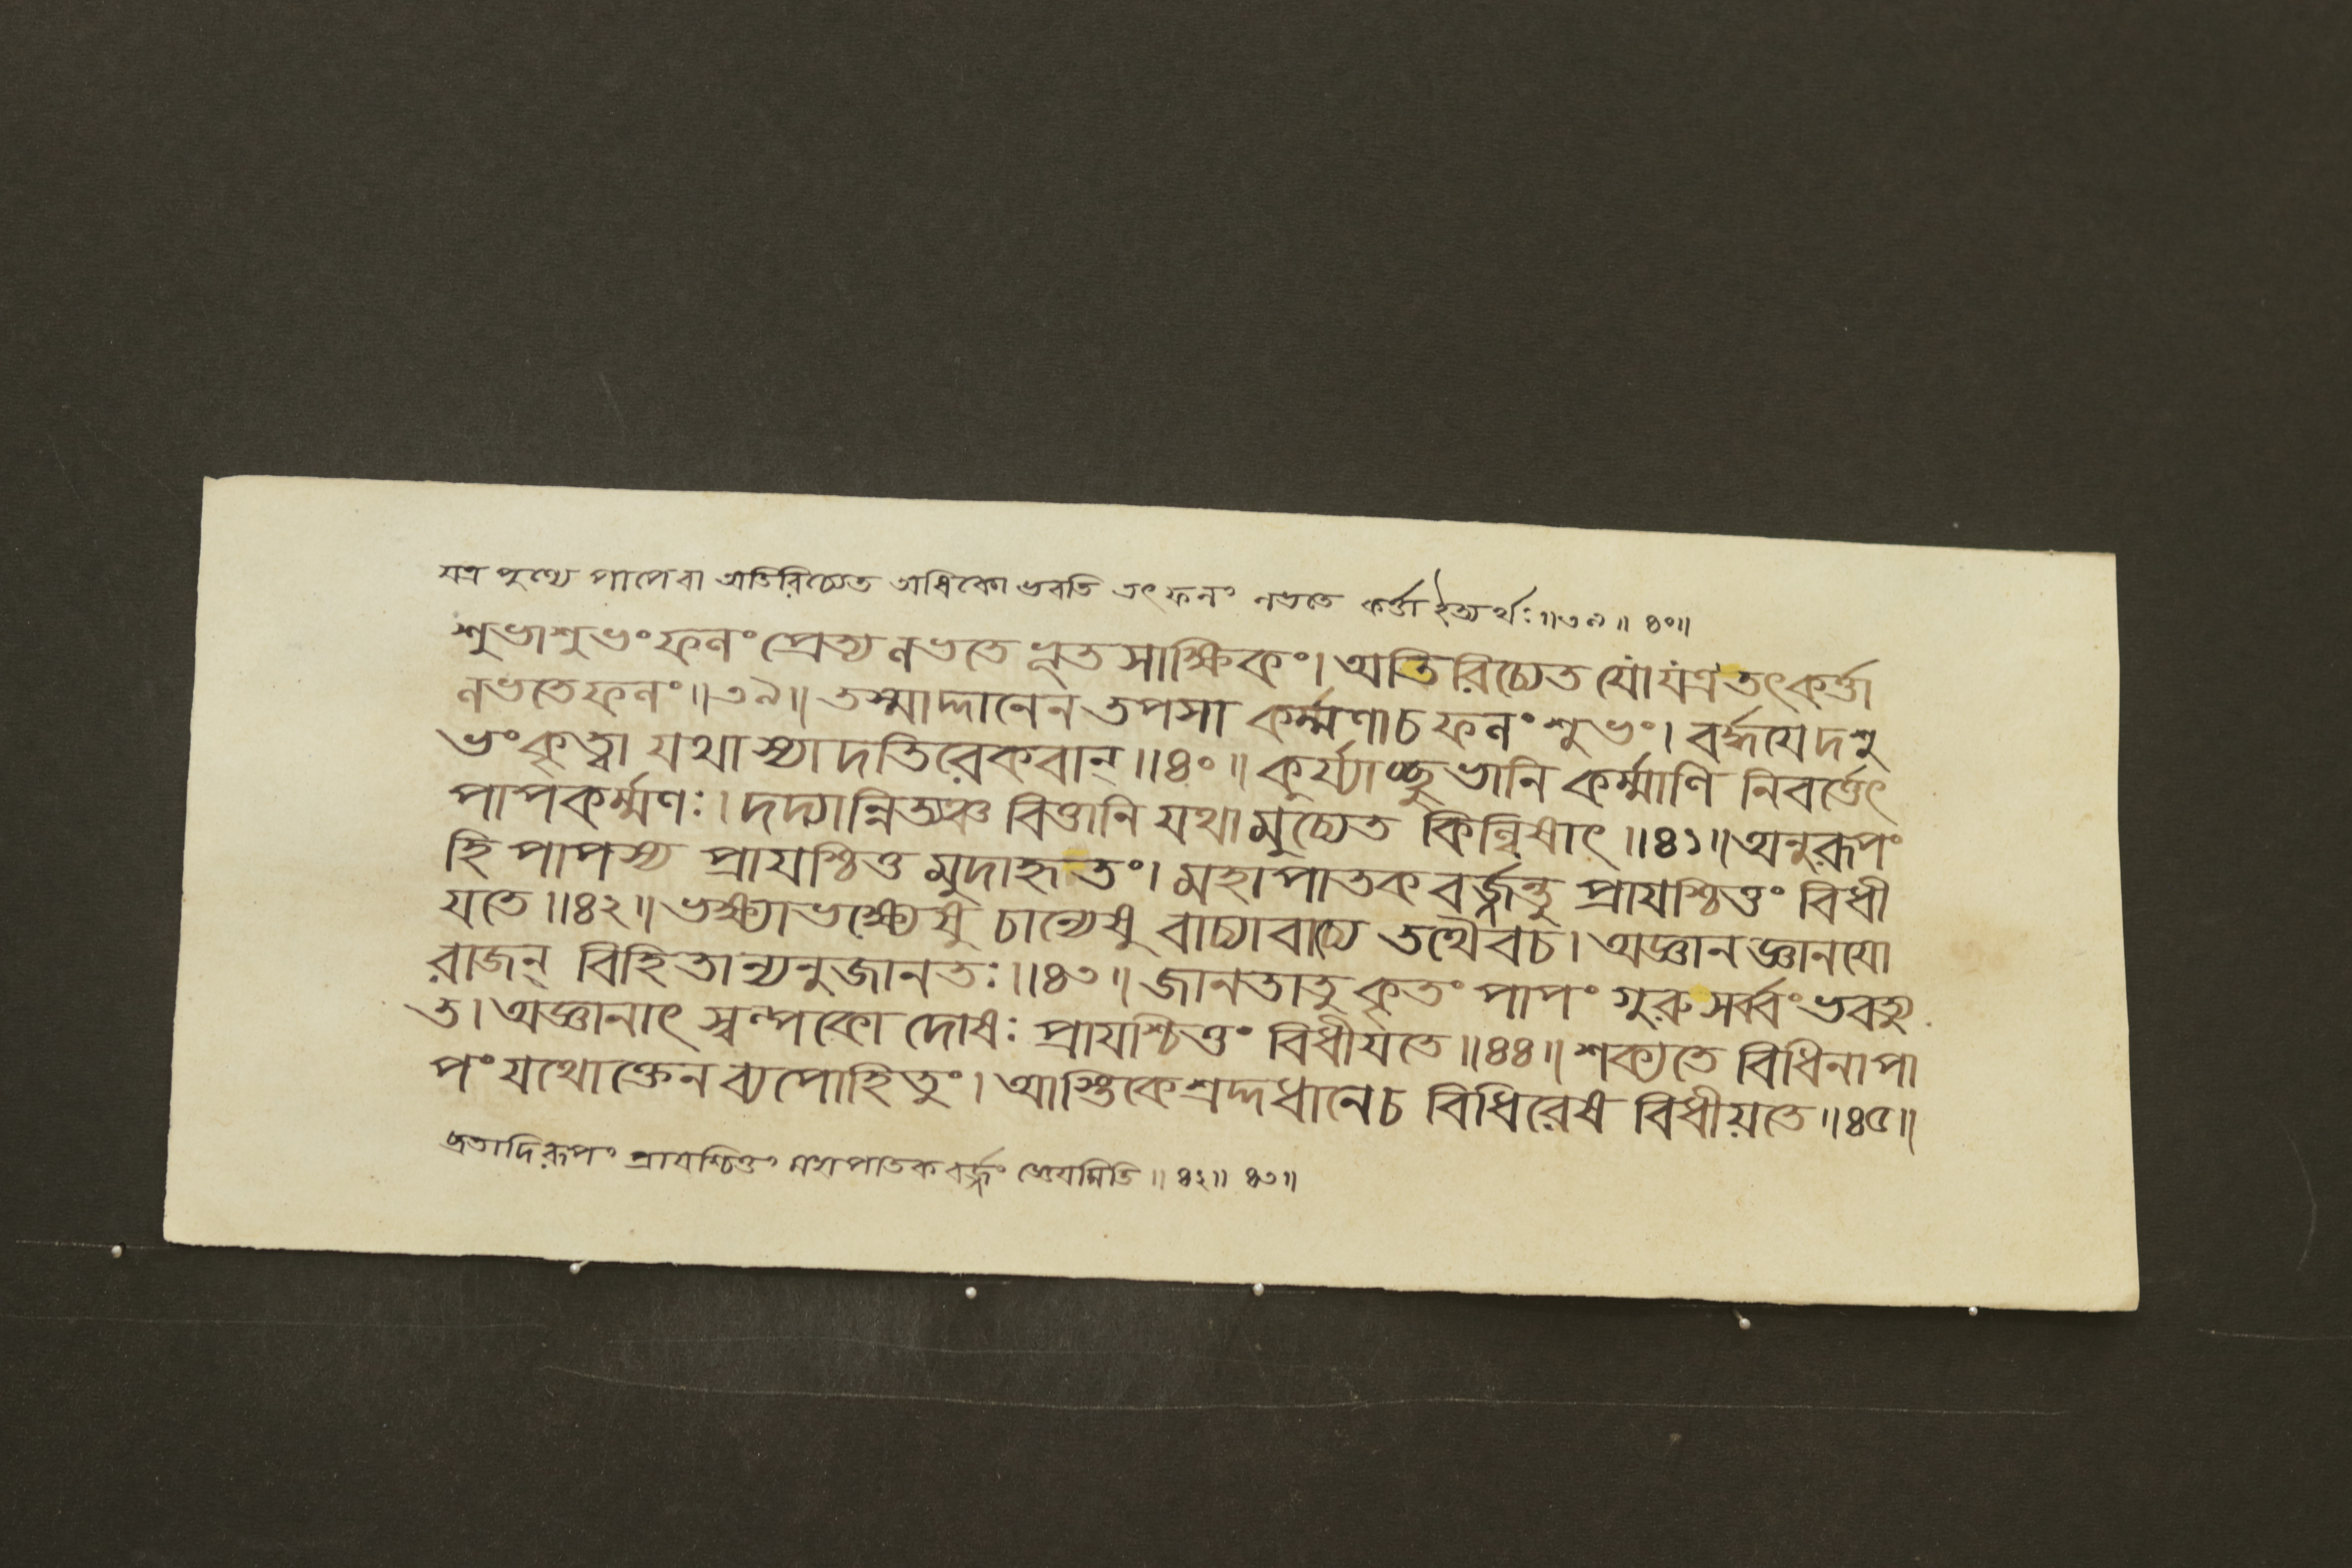 যত্র পুণ্যে পাপেবা অতিরিচ্যেত অধিকো ভবতি তৎ ফলং লভতে কর্ত্তা ইত্যর্থঃ॥৩৯॥ ৪০॥
শুভাশুভং ফলং প্রেত্য লভতে ভূতসাক্ষিকং। অতিরিচ্যেত যো যত্র তৎকর্ত্তা
লভতেফলং॥৩৯॥ তস্মাদ্দানেন তপসা কর্ম্মণাচ ফলং শুভং। বর্দ্ধযেদশু
ভংকৃত্বা যথাস্যাদতিরেকবান্॥৪০॥ কুর্য্যাচ্ছুভানি কর্ম্মাণি নিবর্ত্তেৎ
পাপকর্ম্মণঃ। দদ্যান্নিত্যঞ্চ বিত্তানি যথামুচ্যেত কিল্বিষাৎ॥৪১॥ অনুরূপং
হি পাপস্য প্রাযশ্চিত্ত মুদাহৃতং। মহাপাতক বর্জ্জন্তু প্রাযশ্চিত্তং বিধী
যতে॥৪২॥ ভক্ষ্যাভক্ষ্যেষু চান্যেষু বাচ্যাবাচ্যে তথৈবচ। অজ্ঞানজ্ঞানযো
রাজন্ বিহিতান্যনুজানতঃ॥৪৩॥ জানতাতু কৃতং পাপং গুরু সর্ব্বং ভবত্যু
ত। অজ্ঞানাৎ স্বল্পকো দোষঃ প্রাযশ্চিত্তং বিধীযতে॥৪৪॥ শক্যতে বিধিনাপা
পংযথোক্তেন ব্যপোহিতুং। আস্তিকেশ্রদ্দধানেচ বিধিরেষ বিধীয়তে॥৪৫॥
ব্রতাদিরূপং প্রাযশ্চিত্তং মহাপাতক বর্জ্জং জ্ঞেযমিতি॥৪২॥ ৪৩॥